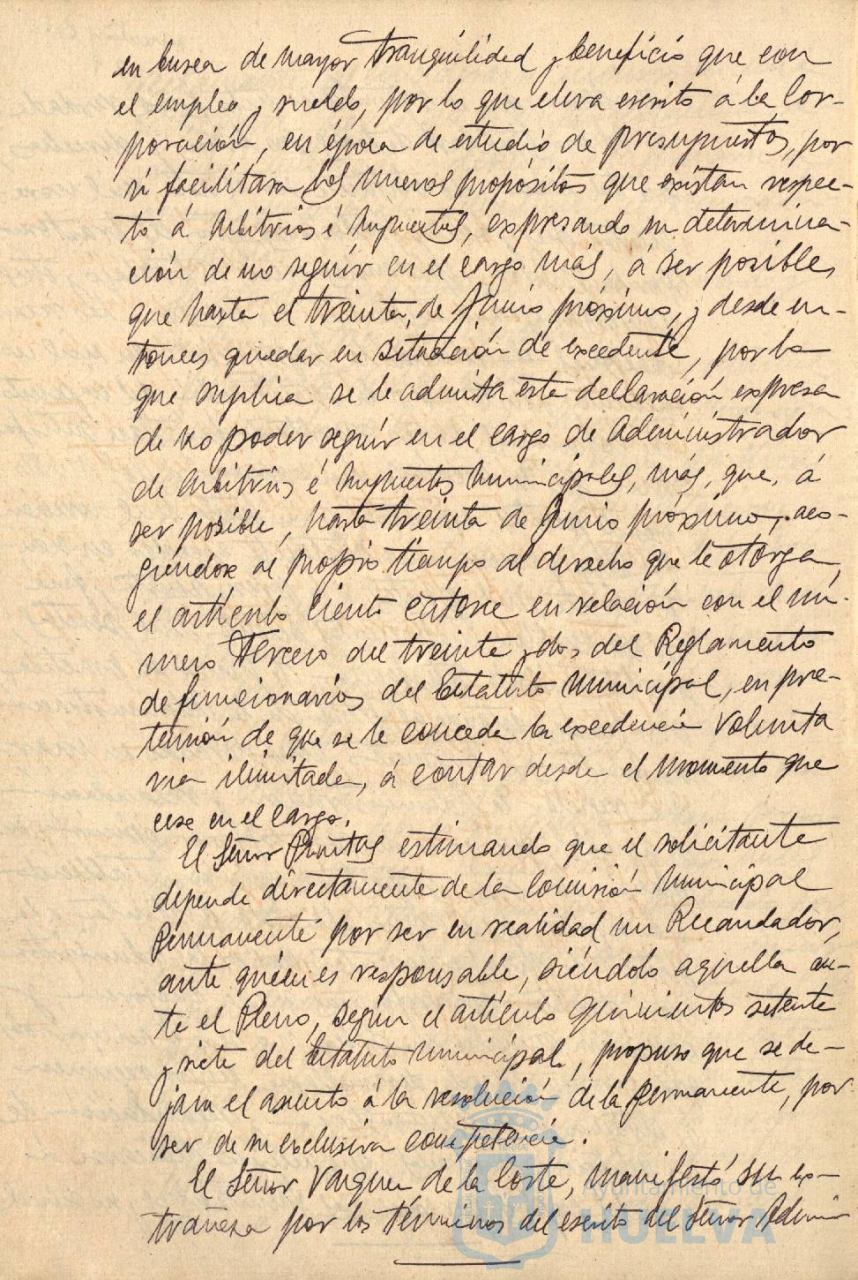 en busca de mayor tranquilidad y beneficio que con
el empleo y sueldo, por lo que eleva escrito á la Cor-
poración, en época de estudio de presupuestos, por
si facilitara los nuevos propósitos que existan respec-
to á Arbitrios é Impuestos, expresando su determina-
ción de no seguir en el cargo más, á ser posible,
que hasta el treinta de Junio próximo, y desde en-
tonces quedar en situación de excedente, por lo
que suplica se le admita esta declaración expresa
de no poder seguir en el cargo de Administrador
de Arbitrios é Impuestos Municipales, más, que, á
ser posible, hasta treinta de Junio próximo, aco-
giéndose al propio tiempo al derecho que le otorga
el artículo ciento catorce en relación con el nú-
mero tercero del treinta y dos del Reglamento
de funcionarios del Estatuto Municipal, en pre-
tensión de que se le conceda la excedencia volunta
ria ilimitada, á contar desde el momento que
cese en el cargo.
El Señor Puntas estimando que el solicitante
depende directamente de la Comisión Municipal
Permanente por ser en realidad un Recaudador,
ante quién es responsable, siéndolo aquella an-
te el Pleno, según el artículo quinientos setenta
y siete del Estatuto Municipal, propuso que se de-
jara el asunto á la resolución de la Permanente, por
ser de su exclusiva competencia.
El Señor Vazquez de la Corte, manifestó su ex-
trañeza por los términos del escrito del Señor Admin
Ayuntamiento de
HUELVA